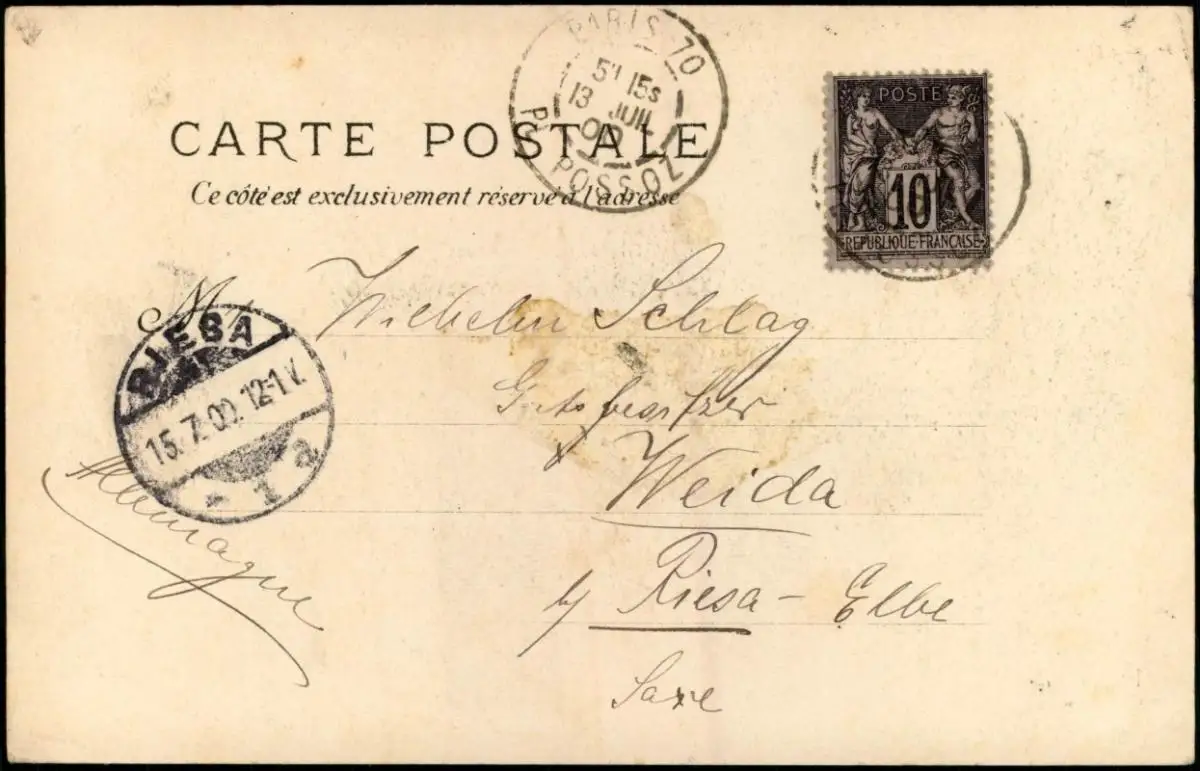 PARIS 70
5E 15S
13 JUIL
00
PL. POSSOZ
POSTE
10
REPUBLIQUE FRANÇAISE
CARTE POSTALE
Ce côté est exclusivement réservé à l'adresse
M
Wilhelm Schlag
RIESA
15.7.00.12-1V.
Gutsbesitzer
Weida
Allemagne
b/ Riesa - Elbe
Saxe